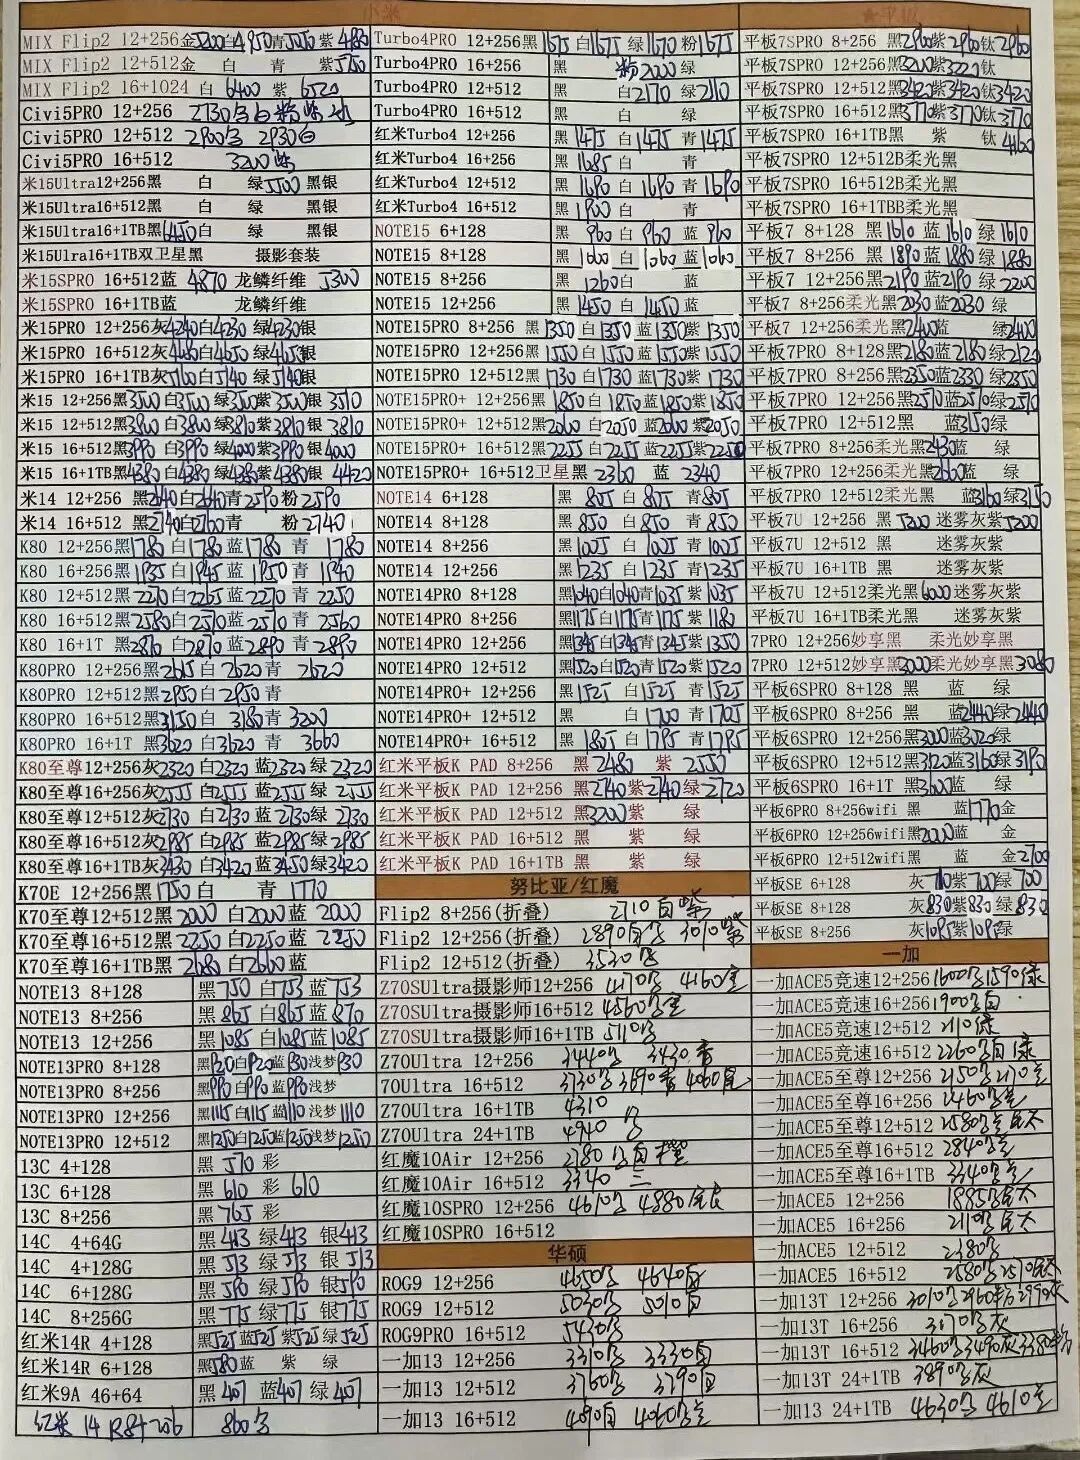 小米
MIX Flip2 12+256金5200白4950青5050紫4980
MIX Flip2 12+512金 白 青 紫5750
MIX Flip2 16+1024 白 6400 紫 6520
Civi5PRO 12+256 2730
Civi5PRO 12+512 2900 2930白
Civi5PRO 16+512 3200
米15Ultra12+256黑 白 绿5500 黑银
米15Ultra16+512黑 白 绿 黑银
米15Ultra16+1TB黑6450白 绿 黑银
米15Ulra16+1TB双卫星黑 摄影套装
米15SPRO 16+512蓝 4870 龙鳞纤维 5300
米15SPRO 16+1TB蓝 龙鳞纤维
米15PRO 12+256灰4240白4230 绿4230银
米15PRO 16+512灰4680白4650 绿4655银
米15PRO 16+1TB灰5160白5140 绿5140银
米15 12+256黑3500白3500 绿3500紫3500银 3510
米15 12+512黑3800白3800 绿3810紫3810银 3810
米15 16+512黑3990白3990 绿4000紫3990银 4000
米15 16+1TB黑4380白4380 绿4380紫4380银 4420
米14 12+256 黑2640白2640青2590粉2590
米14 16+512 黑2740白2760青 粉2740
K80 12+256黑1780白1780蓝1780 青 1780
K80 16+256黑1935白1945蓝1950青 1940
K80 12+512黑2270白2265蓝2270 青 2250
K80 16+512黑2580白2570蓝2570青 2560
K80 16+1T 黑2870白2870蓝2890青 2890
K80PRO 12+256黑2615白 2620青 2620
K80PRO 12+512黑2950白2950青
K80PRO 16+512黑3150白 3180青 3200
K80PRO 16+1T 黑3620 白3620 青 3660
K80至尊12+256灰2320 白2320 蓝2320 绿 2320
K80至尊16+256灰2555 白2555 蓝2555 绿 2555
K80至尊12+512灰2730 白2730 蓝2730 绿 2730
K80至尊16+512灰2985 白2985 蓝2985 绿 2985
K80至尊16+1TB灰3430 白3420 蓝3450 绿3420
K70E 12+256黑1750白 青 1770
K70至尊12+512黑 2000 白2000蓝 2000
K70至尊16+512黑 2250 白2250蓝 2250
K70至尊16+1TB黑 2680 白2660蓝
NOTE13 8+128 黑750 白753 蓝753
NOTE13 8+256 黑865 白865 蓝870
NOTE13 12+256 黑1085 白1085蓝1085
NOTE13PRO 8+128 黑920白920蓝930浅梦930
NOTE13PRO 8+256 黑990白990蓝990浅梦
NOTE13PRO 12+256 黑1115白1115蓝1110浅梦 1110
NOTE13PRO 12+512 黑1250白1250蓝1250浅梦1250
13C 4+128 黑 570 彩
13C 6+128 黑 610 彩 610
13C 8+256 黑 765 彩
14C 4+64G 黑 413 绿413 银413
14C 4+128G 黑 513 绿 513 银 513
14C 6+128G 黑 590 绿590 银590
14C 8+256G 黑 775 绿775 银775
红米14R 4+128 黑525蓝525紫525绿525
红米14R 6+128 黑580蓝 紫 绿
红米9A 46+64 黑 407 蓝407 绿407
红米 14R8+256 860
Turbo4PRO 12+256黑 1675 白1675 绿1670 粉1675
Turbo4PRO 16+256 黑 粉2000绿
Turbo4PRO 12+512 黑 白2170 绿2110
Turbo4PRO 16+512 黑 白 绿
红米Turbo4 12+256 黑 1475 白1475 青1475
红米Turbo4 16+256 黑 1685白 青
红米Turbo4 12+512 黑 1690 白 1690 青1690
红米Turbo4 16+512 黑 1900白 青
NOTE15 6+128 黑 960 白 960 蓝 960
NOTE15 8+128 黑 1060 白 1060 蓝1060
NOTE15 8+256 黑 1260白 蓝
NOTE15 12+256 黑 1450 白 1450蓝
NOTE15PRO 8+256 黑 1350 白1350蓝1350紫1350
NOTE15PRO 12+256黑 1550 白1550蓝1550紫1550
NOTE15PRO 12+512黑 1730白1730蓝1730紫 1730
NOTE15PRO+ 12+256黑 1850白1850蓝1850紫1850
NOTE15PRO+ 12+512黑2060 白2050蓝2060紫2050
NOTE15PRO+ 16+512黑 2255 白2255蓝2255紫2250
NOTE15PRO+ 16+512卫星黑 2360 蓝 2340
NOTE14 6+128 黑 805 白 805 青805
NOTE14 8+128 黑 850 白850 青 850
NOTE14 8+256 黑 1005 白 1005 青1005
NOTE14 12+256 黑 1235 白1235 青1235
NOTE14PRO 8+128 黑1040白1040青1035紫1035
NOTE14PRO 8+256 黑1175白1175青1175紫 1180
NOTE14PRO 12+256 黑1345白1345青1345紫1350
NOTE14PRO 12+512 黑1520白1520青1520紫1520
NOTE14PRO+ 12+256 黑 1525 白1525 青1525
NOTE14PRO+ 12+512 黑 白1700 青1705
NOTE14PRO+ 16+512 黑 1805 白1795 青1795
红米平板K PAD 8+256 黑 2480 紫 2550
红米平板K PAD 12+256 黑 2740紫2740绿2720
红米平板K PAD 12+512 黑3200紫 绿
红米平板K PAD 16+512 黑 紫 绿
红米平板K PAD 16+1TB 黑 紫 绿
努比亚/红魔
Flip2 8+256(折叠) 2710白
Flip2 12+256(折叠) 2890 3010
Flip2 12+512(折叠) 3530
Z70SUltra摄影师12+256 4170 4160
Z70SUltra摄影师16+512 4560
Z70SUltra摄影师16+1TB 5110
Z70Ultra 12+256 3440 3430
70Ultra 16+512 3730 3690 4060
Z70Ultra 16+1TB 4310
Z70Ultra 24+1TB 4940
红魔10Air 12+256 2780
红魔10Air 16+512 3340
红魔10SPRO 12+256 4610 4880
红魔10SPRO 16+512
华硕
ROG9 12+256 4650 4640白
ROG9 12+512 5030 5010白
ROG9PRO 16+512 5430
一加13 12+256 3310 3330白
一加13 12+512 3760 3790白
一加13 16+512 4090白 4060
★平板
平板7SPRO 8+256 黑2960紫2960钛2960
平板7SPRO 12+256黑3200紫3220钛
平板7SPRO 12+512黑3420紫3420钛3420
平板7SPRO 16+512黑3770紫3770钛3770
平板7SPRO 16+1TB黑 紫 钛4160
平板7SPRO 12+512B柔光黑
平板7SPRO 16+512B柔光黑
平板7SPRO 16+1TBB柔光黑
平板7 8+128 黑1610 蓝1610 绿1610
平板7 8+256 黑 1890 蓝1880 绿1880
平板7 12+256黑2190蓝2190 绿2200
平板7 8+256柔光黑2030蓝2030 绿
平板7 12+256柔光黑2400蓝 绿2400
平板7PRO 8+128黑2180蓝2180 绿2120
平板7PRO 8+256黑2350蓝2330 绿2350
平板7PRO 12+256黑2510蓝2510绿2510
平板7PRO 12+512黑 蓝3150绿
平板7PRO 8+256柔光黑2430蓝 绿
平板7PRO 12+256柔光黑2660蓝 绿
平板7PRO 12+512柔光黑 蓝3160绿3150
平板7U 12+256 黑 5200 迷雾灰紫5200
平板7U 12+512 黑 迷雾灰紫
平板7U 16+1TB 黑 迷雾灰紫
平板7U 12+512柔光黑6000迷雾灰紫
平板7U 16+1TB柔光黑 迷雾灰紫
7PRO 12+256妙享黑 柔光妙享黑
7PRO 12+512妙享黑3000柔光妙享黑3080
平板6SPRO 8+128 黑 蓝 绿
平板6SPRO 8+256 黑 蓝2440绿2440
平板6SPRO 12+256黑3000蓝3020绿
平板6SPRO 12+512黑3120蓝3160绿3190
平板6SPRO 16+1T 黑3600蓝 绿
平板6PRO 8+256wifi 黑 蓝1770金
平板6PRO 12+256wifi黑2020蓝 金
平板6PRO 12+512wifi黑 蓝 金2700
平板SE 6+128 灰710紫700绿700
平板SE 8+128 灰830紫830绿830
平板SE 8+256 灰1095紫1095绿
一加
一加ACE5竞速12+256 1600 1590绿
一加ACE5竞速16+256 1900 白
一加ACE5竞速12+512 2110绿
一加ACE5竞速16+512 2260 白 绿
一加ACE5至尊12+256 2150 2170
一加ACE5至尊16+256 2460
一加ACE5至尊12+512 2580
一加ACE5至尊16+512 2840
一加ACE5至尊16+1TB 3340
一加ACE5 12+256 1885
一加ACE5 16+256 2110
一加ACE5 12+512 2380
一加ACE5 16+512 2580 2510
一加13T 12+256 3010 2960粉 2990灰
一加13T 16+256 3170灰
一加13T 16+512 3460 3490灰3380粉
一加13T 24+1TB 3890 灰
一加13 24+1TB 4630 4610